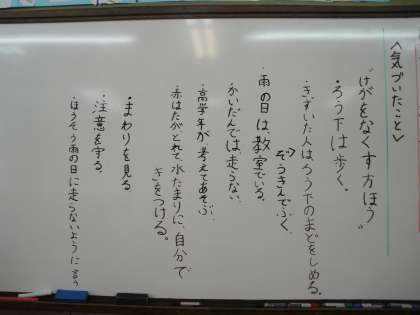 <気づいたこと>
"けがをなくす方ほう"
・ろう下は歩く。
・きずいた人はろう下のまどをしめる。
ぞうきんでふく
・雨の日は、教室でいる。
・かいだんでは、走らない。
・高学年が考えてあそぶ。
・赤はたがとれて、水たまりに、自分で
きをつける。
・まわりを見る
・注意を守る。
・ほうそう雨の日に走らないように言う